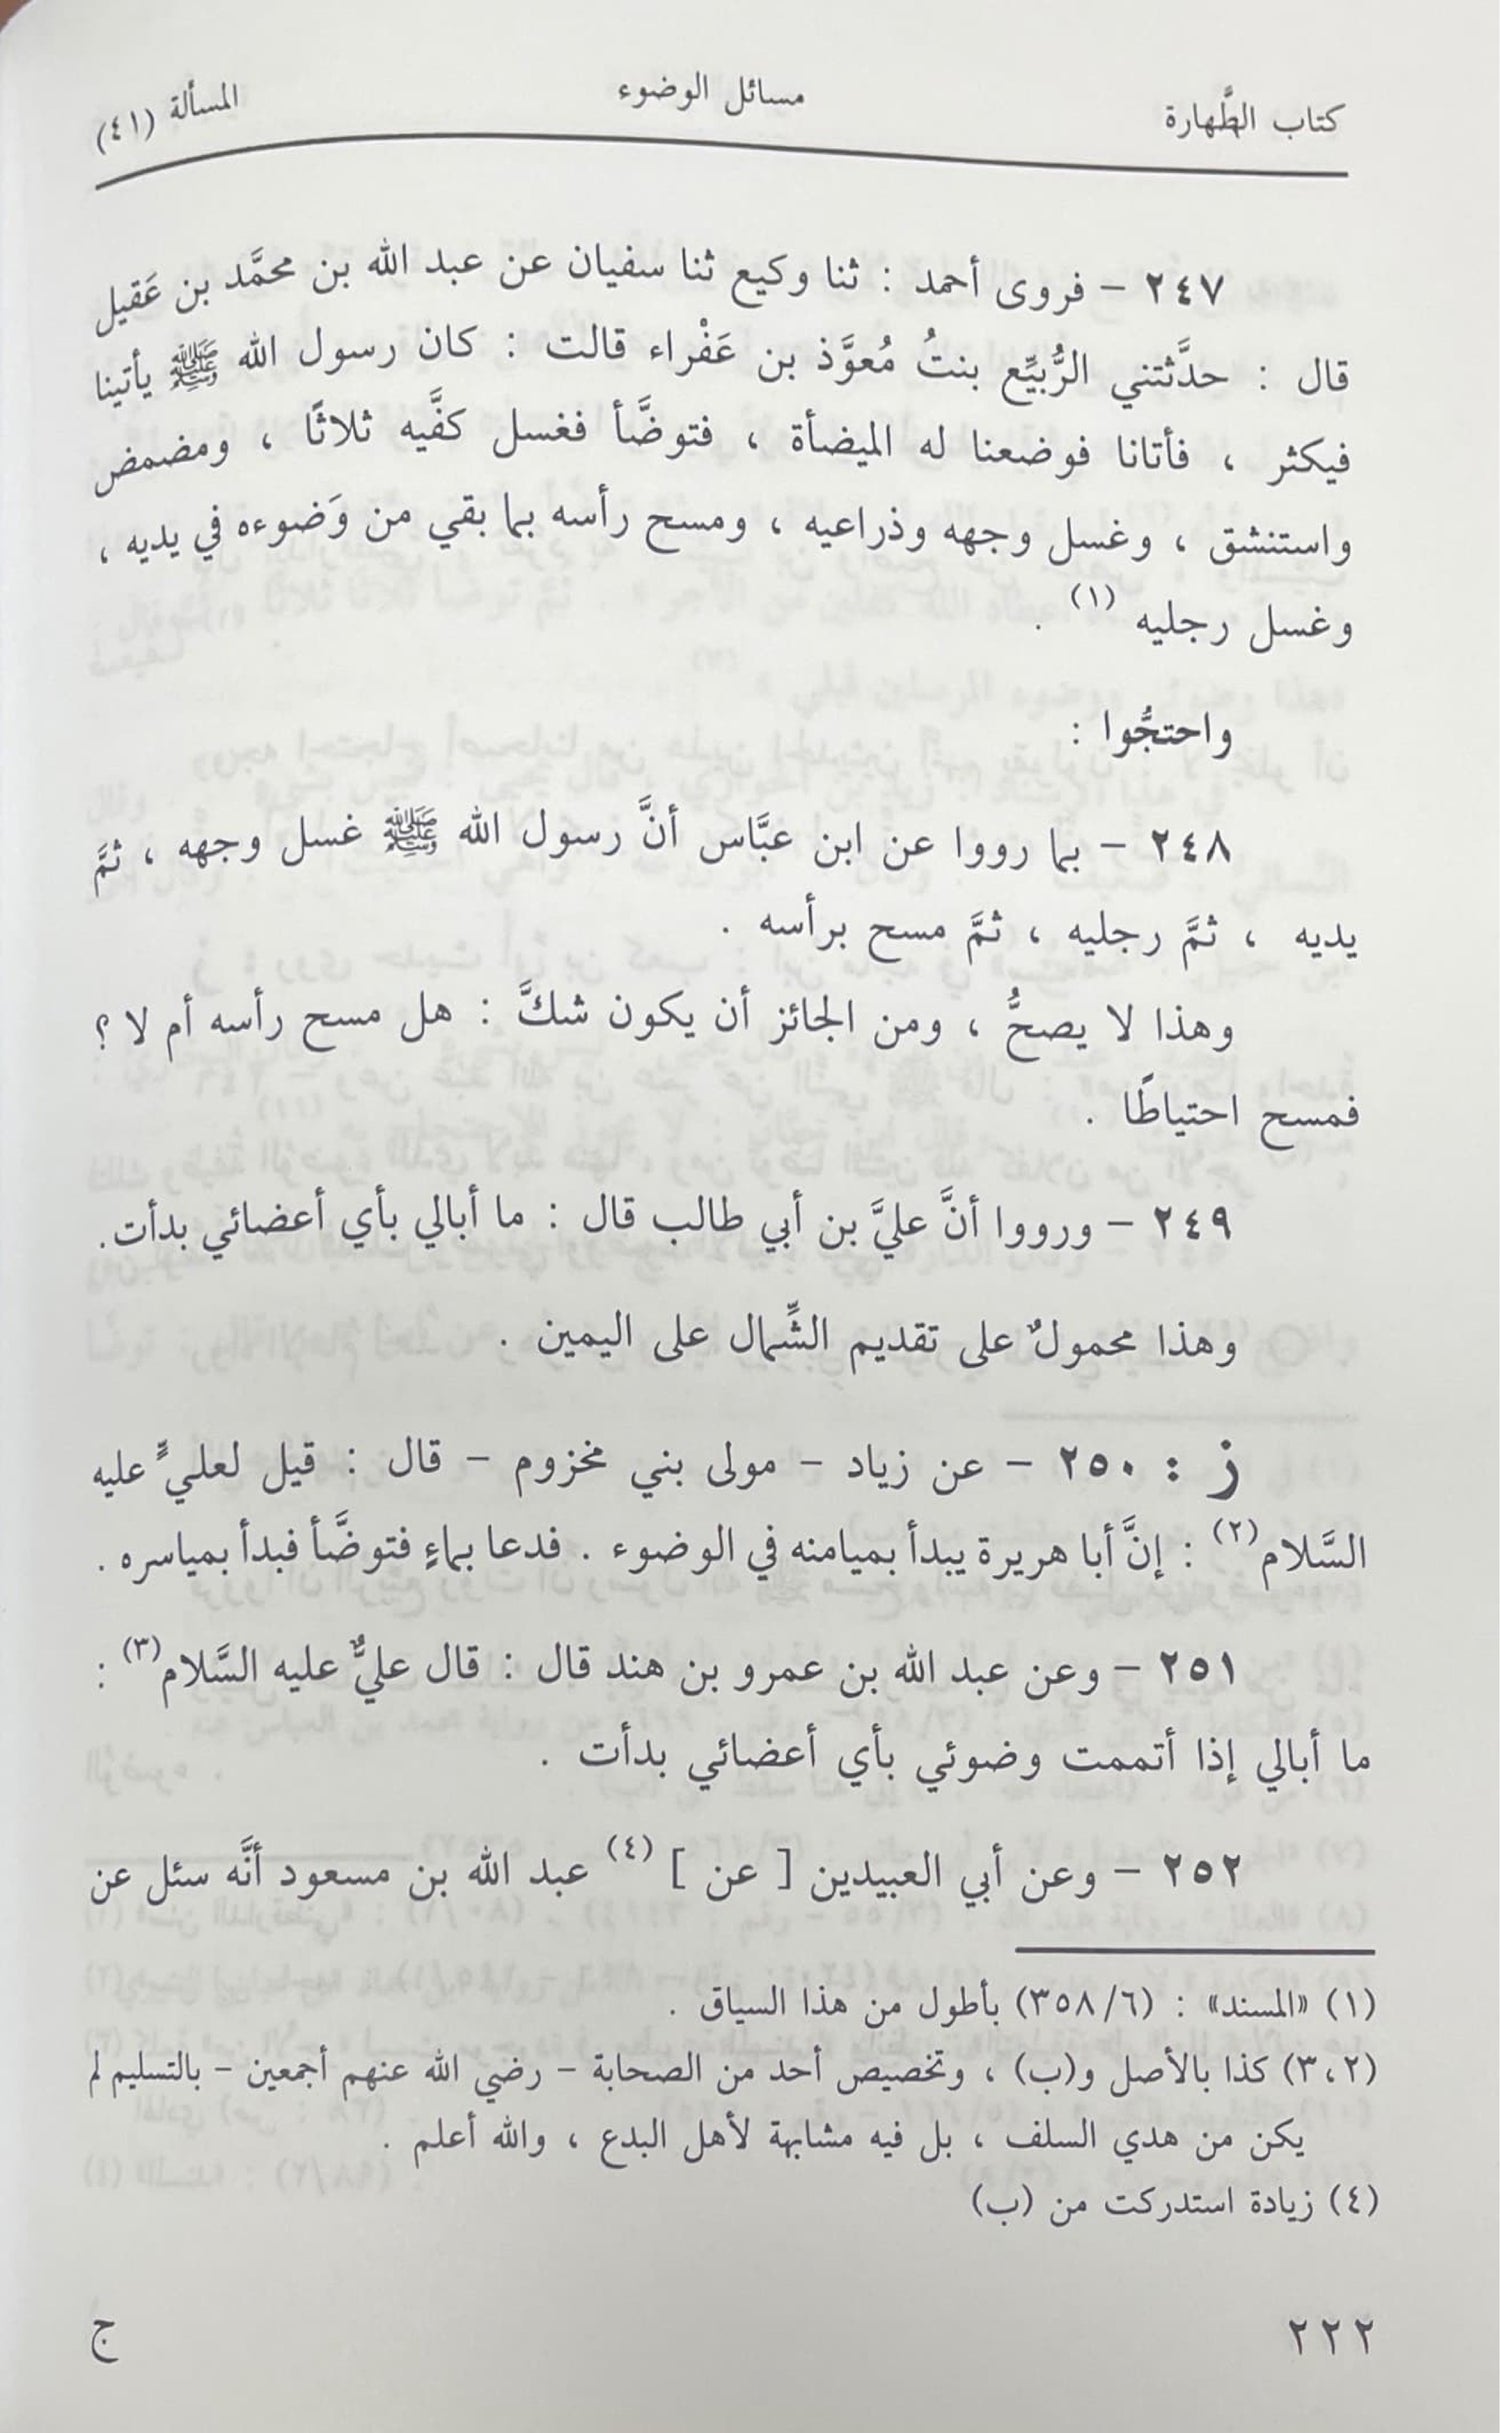 كتاب الطَّهارة مسائل الوضوء المسألة (٤١)
٢٤٧ – فروى أحمد : ثنا وكيع ثنا سفيان عن عبد الله بن محمَّد بن عَقيل
قال : حدَّثتني الرُّبيِّع بنتُ مُعوَّذ بن عَفْراء قالت : كان رسول الله ﷺ يأتينا
فيكثر ، فأتانا فوضعنا له الميضأة ، فتوضَّأ فغسل كفَّيه ثلاثًا ، ومضمض
واستنشق ، وغسل وجهه وذراعيه ، ومسح رأسه بما بقي من وَضوءه في يديه ،
وغسل رجليه (١) .
واحتجُّوا :
٢٤٨ – بما رووا عن ابن عبَّاس أنَّ رسول الله ﷺ غسل وجهه ، ثمَّ
يديه ، ثمَّ رجليه ، ثمَّ مسح برأسه .
وهذا لا يصحُّ ، ومن الجائز أن يكون شكَّ : هل مسح رأسه أم لا ؟
فمسح احتياطًا .
٢٤٩ – ورووا أنَّ عليَّ بن أبي طالب قال : ما أبالي بأي أعضائي بدأت.
وهذا محمولٌ على تقديم الشِّمال على اليمين .
ز : ٢٥٠ – عن زياد – مولى بني مخزوم – قال : قيل لعليٍّ عليه
السَّلام(٢) : إنَّ أبا هريرة يبدأ بميامنه في الوضوء . فدعا بماءٍ فتوضَّأ فبدأ بمياسره .
٢٥١ – وعن عبد الله بن عمرو بن هند قال : قال عليٌّ عليه السَّلام(٣) :
ما أبالي إذا أتممت وضوئي بأي أعضائي بدأت .
٢٥٢ – وعن أبي العبيدين [ عن ] (٤) عبد الله بن مسعود أنَّه سئل عن
(١) «المسند» : (٦/ ٣٥٨) بأطول من هذا السياق .
(٢، ٣) كذا بالأصل و(ب) ، وتخصيص أحد من الصحابة – رضي الله عنهم أجمعين – بالتسليم لم
يكن من هدي السلف ، بل فيه مشابهة لأهل البدع ، والله أعلم .
(٤) زيادة استدركت من (ب)
٢٢٢ ج